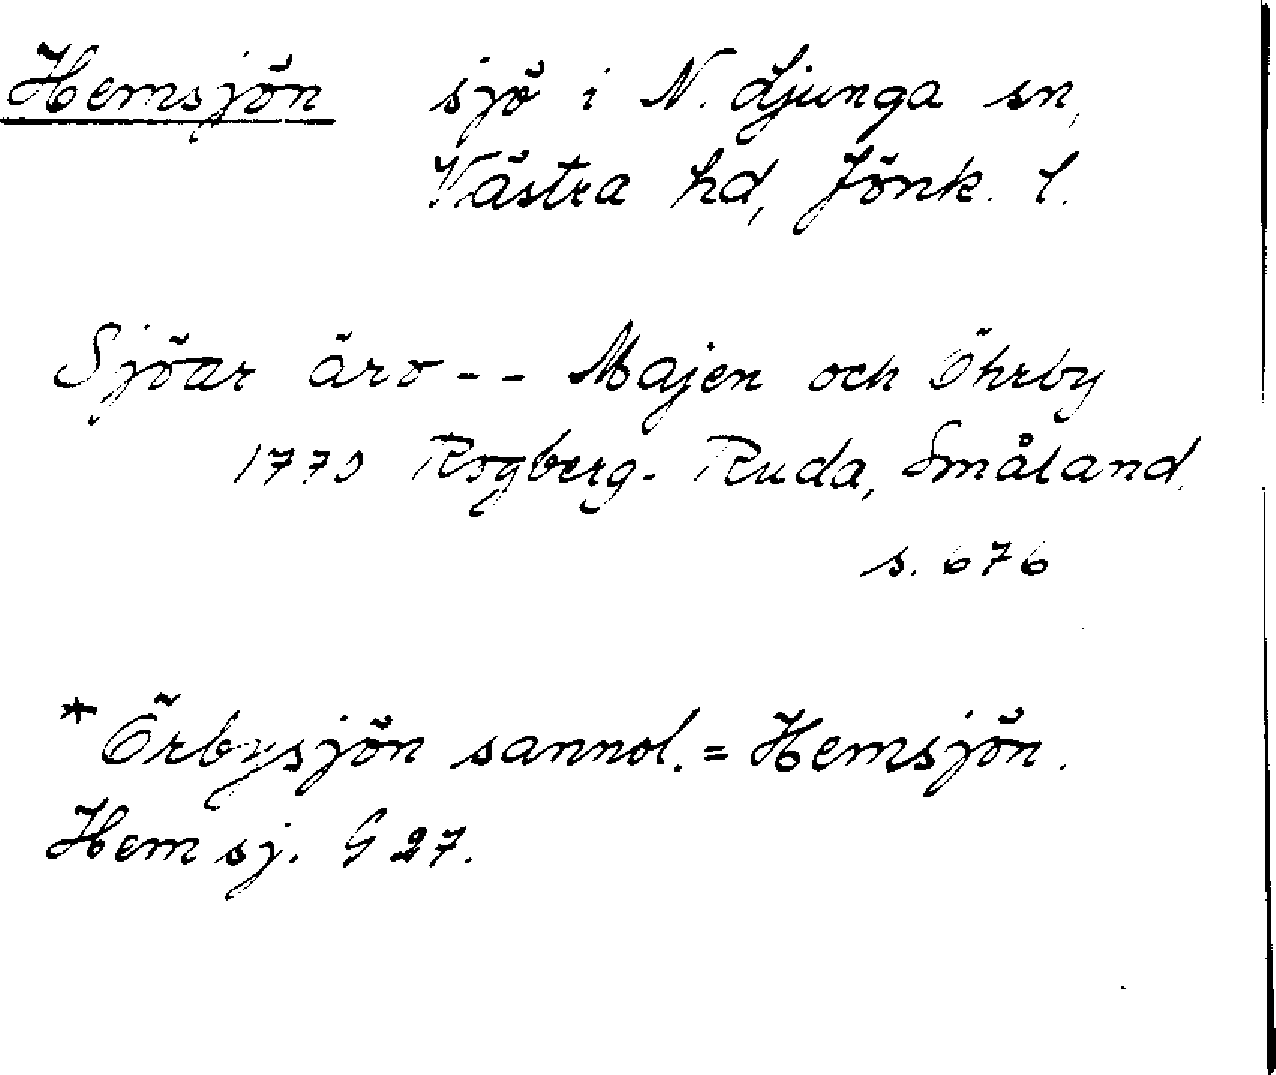 Hemsjön sjö i N. Ljunga sn,
Västra hd, Jönk. l.
Sjöar äro - - Majen och Öhrby
1770 Rogberg - Ruda, Småland
s. 676
* Örbysjön sannol. = Hemsjön.
Hemsj. G 27.